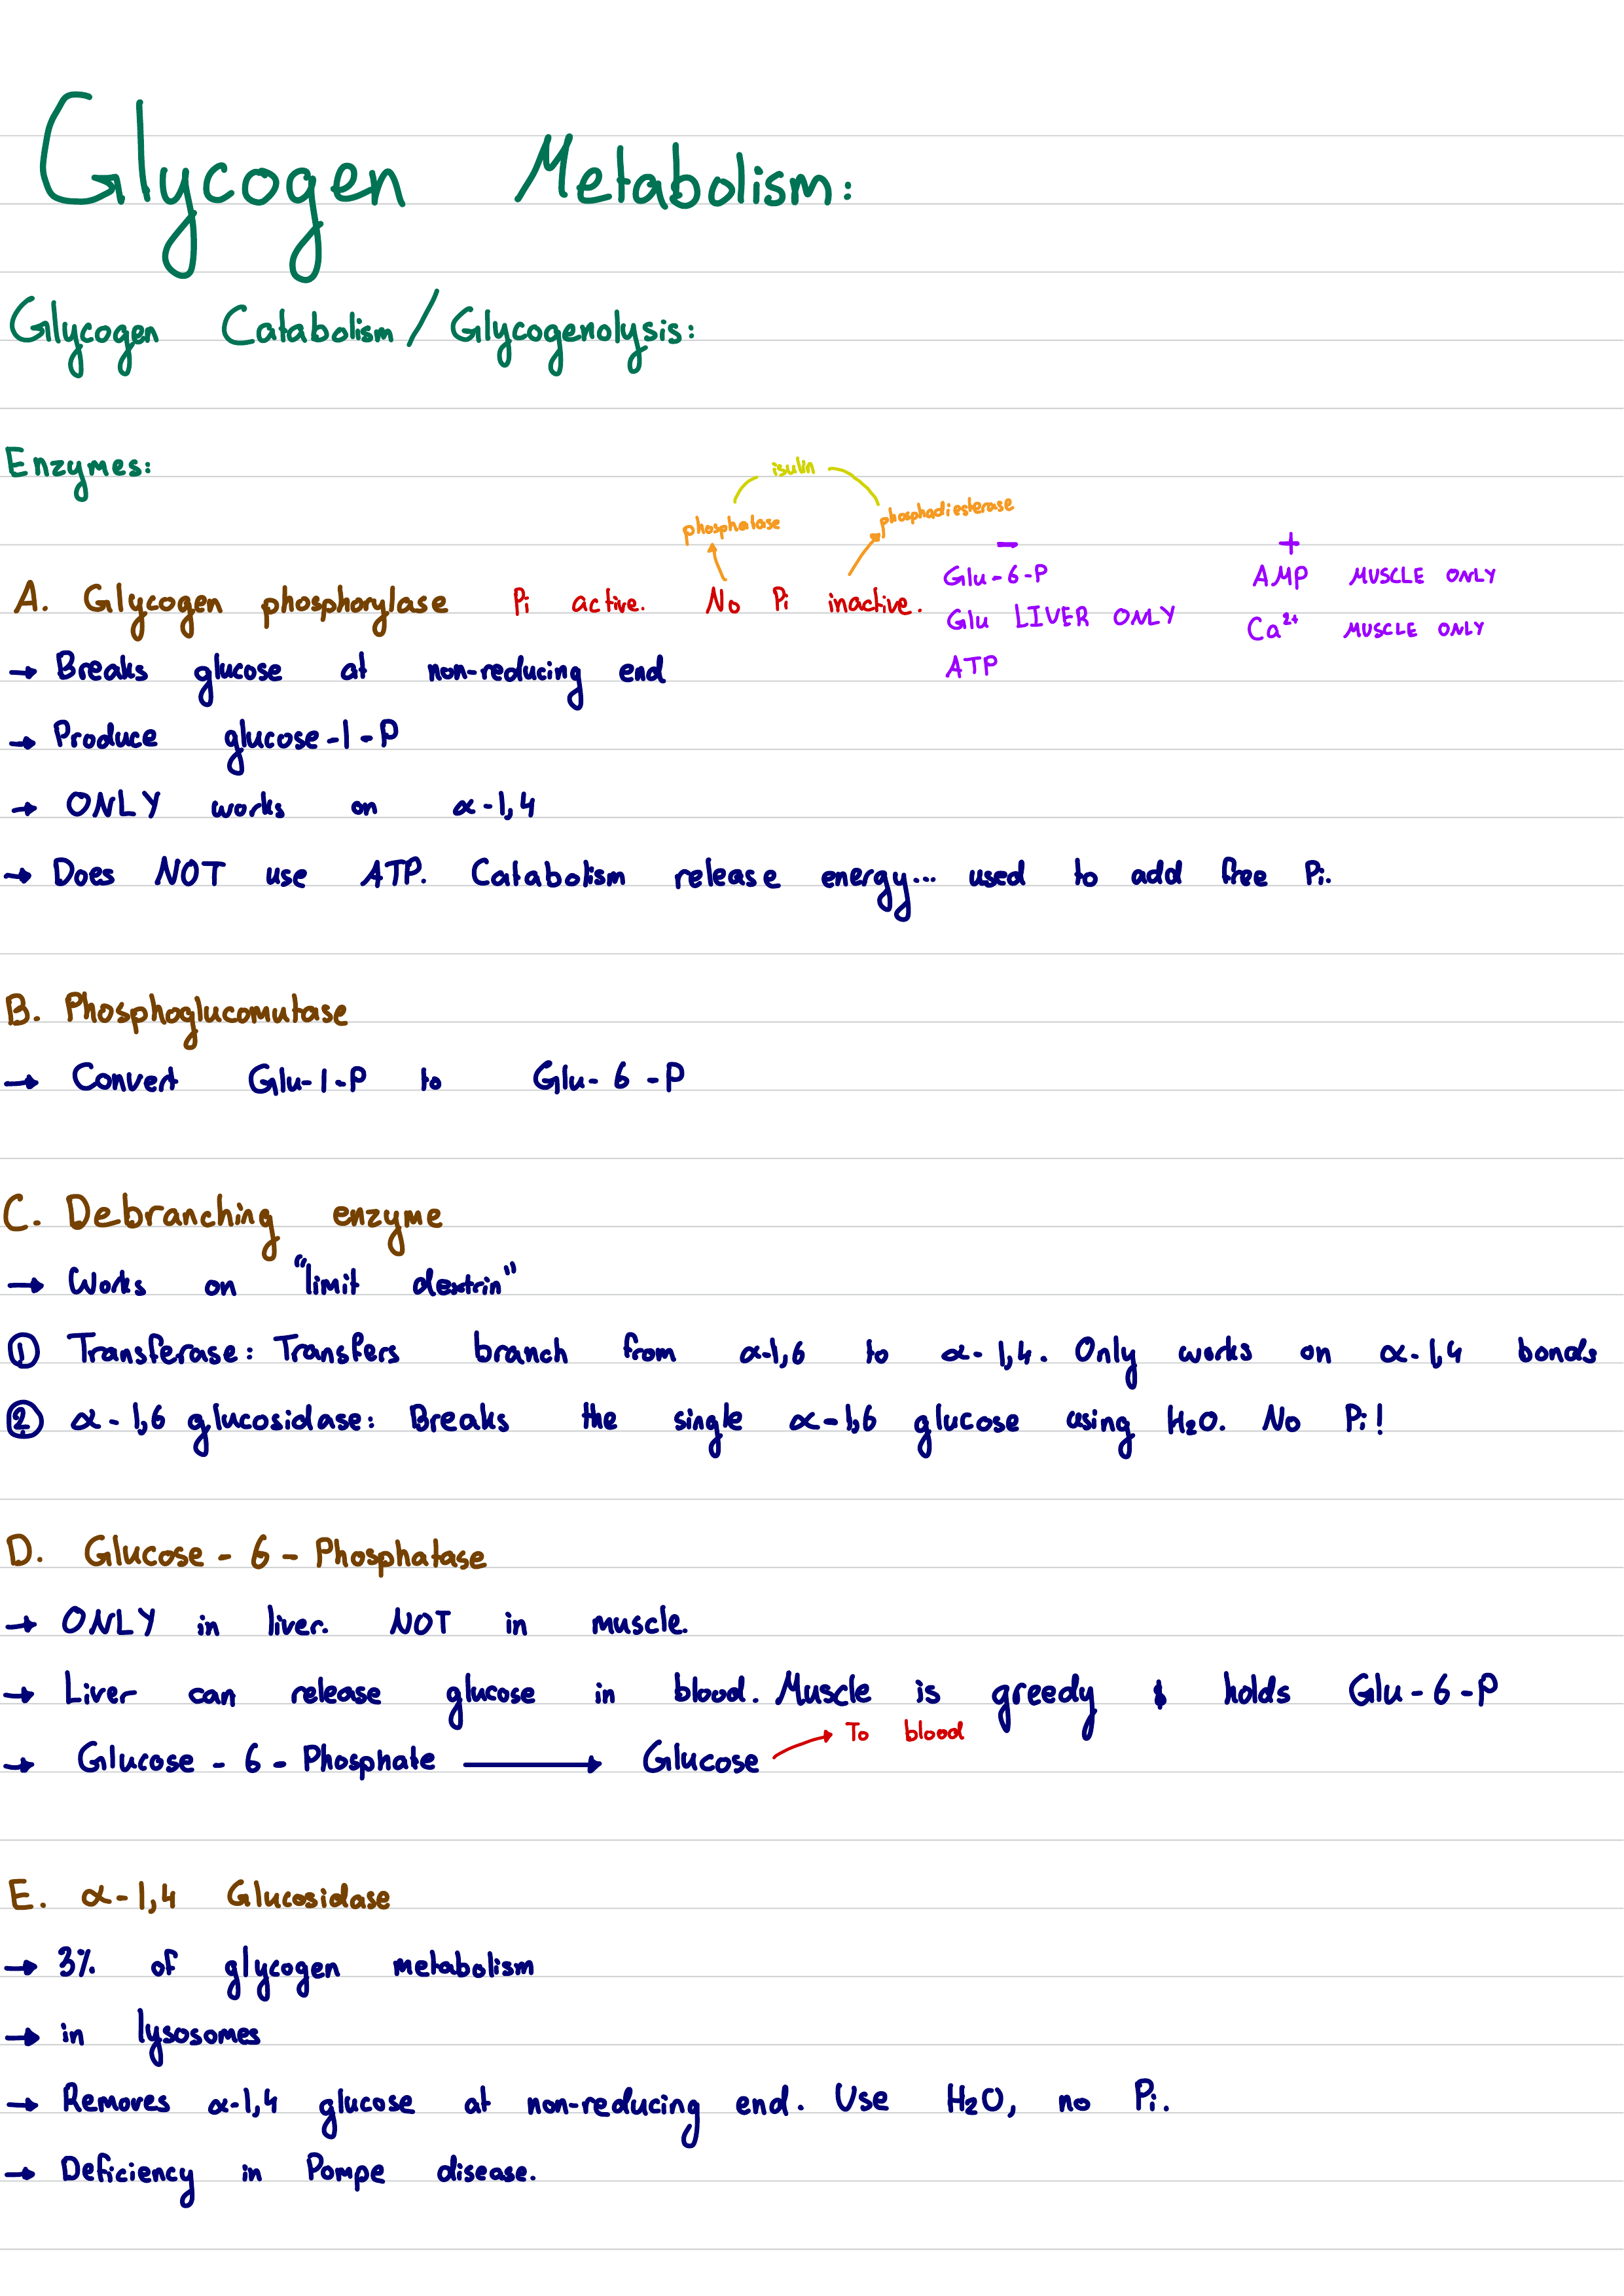 Glycogen Metabolism:
Glycogen Catabolism / Glycogenolysis:
Enzymes:
isulin
phosphatase phosphadiesterase
− +
A. Glycogen phosphorylase Pi active. No Pi inactive.
Glu-6-P AMP MUSCLE ONLY
Glu LIVER ONLY Ca²⁺ MUSCLE ONLY
ATP
→ Breaks glucose at non-reducing end
→ Produce glucose-1-P
→ ONLY works on α-1,4
→ Does NOT use ATP. Catabolism release energy... used to add free Pi.
B. Phosphoglucomutase
→ Convert Glu-1-P to Glu-6-P
C. Debranching enzyme
→ Works on "limit dextrin"
① Transferase: Transfers branch from α-1,6 to α-1,4. Only works on α-1,4 bonds
② α-1,6 glucosidase: Breaks the single α-1,6 glucose using H₂O. No Pi!
D. Glucose-6-Phosphatase
→ ONLY in liver. NOT in muscle.
→ Liver can release glucose in blood. Muscle is greedy & holds Glu-6-P
→ Glucose-6-Phosphate → Glucose → To blood
E. α-1,4 Glucosidase
→ 3% of glycogen metabolism
→ in lysosomes
→ Removes α-1,4 glucose at non-reducing end. Use H₂O, no Pi.
→ Deficiency in Pompe disease.